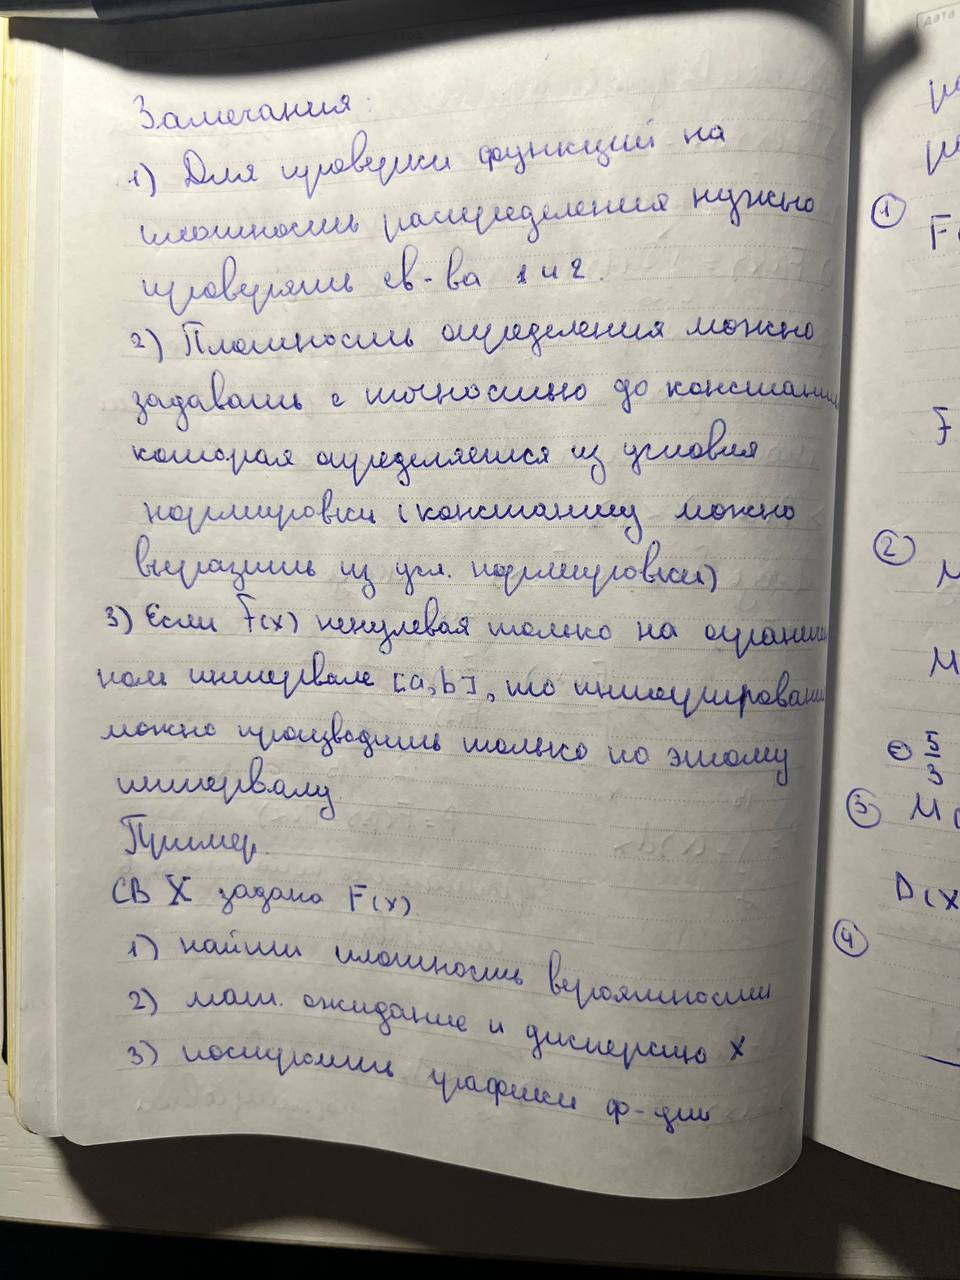 Замечания:
1) Для проверки функций на
плотность распределения нужно
проверять св-ва 1 и 2.
2) Плотность определения можно
задавать с точностью до константы
которая определяется из условия
нормировки (константу можно
выразить из усл. нормировки)
3) Если F(x) ненулевая только на огранич
ном интервале [a,b], то интегрирован
можно производить только по этому
интервалу
Пример.
СВ X задана F(x).
1) найти плотность вероятности
2) мат. ожидание и дисперсию X
3) построить графики ф-ции
①
F(
F
②
M
M
5
3
③ M(
D(x
④
дата